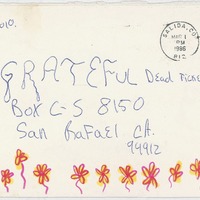 SALIDA, CO
MAR 1
PM
1986
812
GRATEFUL Dead Ticke
Box C-S 8150
San Rafael CA.
94912